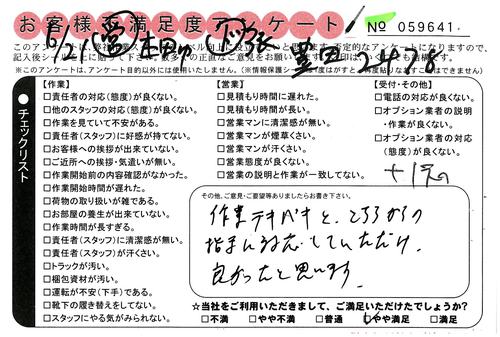 お客様満足度アンケート
No 059641
このアンケートは、
※このアンケートは、アンケート目的以外には使用いたしません。
チェックリスト
【作業】
□責任者の対応(態度)が良くない。
□他のスタッフの対応(態度)が良くない。
□作業を見ていて不安がある。
□責任者(スタッフ)に好感が持てない。
□お客様への挨拶が出来ていない。
□ご近所への挨拶・気遣いが無い。
□作業開始前の内容確認がなかった。
□作業開始時間が遅れた。
□荷物の取り扱いが雑である。
□お部屋の養生が出来ていない。
□作業時間が長すぎる。
□責任者(スタッフ)に清潔感が無い。
□責任者(スタッフ)が汗くさい。
□トラックが汚い。
□梱包資材が汚い。
□運転が不安(下手)である。
□靴下の履き替えをしてない。
□スタッフにやる気がみられない。
【営業】
□見積もり時間に遅れた。
□見積もり時間が長い。
□営業マンに清潔感が無い。
□営業マンが煙草くさい。
□営業マンが汗くさい。
□営業態度が良くない。
□営業の説明と作業が一致してない。
【受付・その他】
□電話の対応が良くない。
□オプション業者の説明
・作業が良くない。
□オプション業者の対応
(態度)が良くない。
その他、ご意見・ご要望等ありましたらお書き下さい。
作業テキパキと、こちらからの
指示に対応していただけ、
良かったと思います。
☆当社をご利用いただきまして、ご満足いただけたでしょうか?
□不満 □やや不満 □普通 □やや満足 □満足